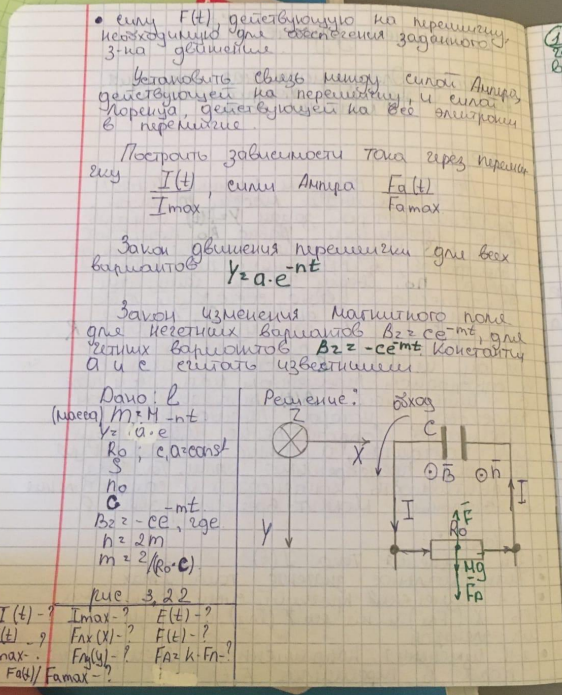 • силу F(t), действующую на перемычку,
необходимую для обеспечения заданного
з-на движения
Установить связь между силой Ампера,
действующей на перемычку, и силой
Лоренца, действующей на все электроны
в перемычке.
Построить зависимости тока через перемыч
ку I(t)/Imax, силы Ампера Fa(t)/Famax
Закон движения перемычки для всех
вариантов y = a·e^-nt
Закон изменения магнитного поля
для нечетных вариантов Bz = ce^-mt, для
четных вариантов Bz = -ce^-mt Константы
a и c считать известными.
Дано: l
(масса) m = M
y = a·e^-nt
Ro; c, a = const
S
no
C
Bz = -ce^-mt, где
n = 2m
m = 2/(Ro·C)
рис. 3.22
I(t)-? Imax-? E(t)-?
(t)-? Fлx(x)-? F(t)-?
max-? Fлy(y)-? FA = k·Fл-?
Fa(t)/Famax-?
Решение:
обход
Z
X
Y
C
B
n
I
I
F
Ro
Mg
FA
1